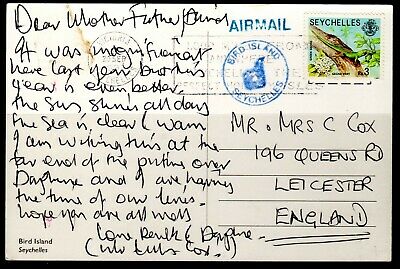 Dear Mother Father/David
It was magnificent
here last year but this
year is even better.
The Sun shines all day
the sea is clear & warm
I am writing this at the
far end of the
Daphne and I are having
the time of our lives.
hope you are all well
Love & Daphne
Bird Island
Seychelles
AIRMAIL
BIRD ISLAND
SEYCHELLES
SEYCHELLES
Rs 3
MR & MRS C COX
196 QUEENS RD
LEICESTER
ENGLAND